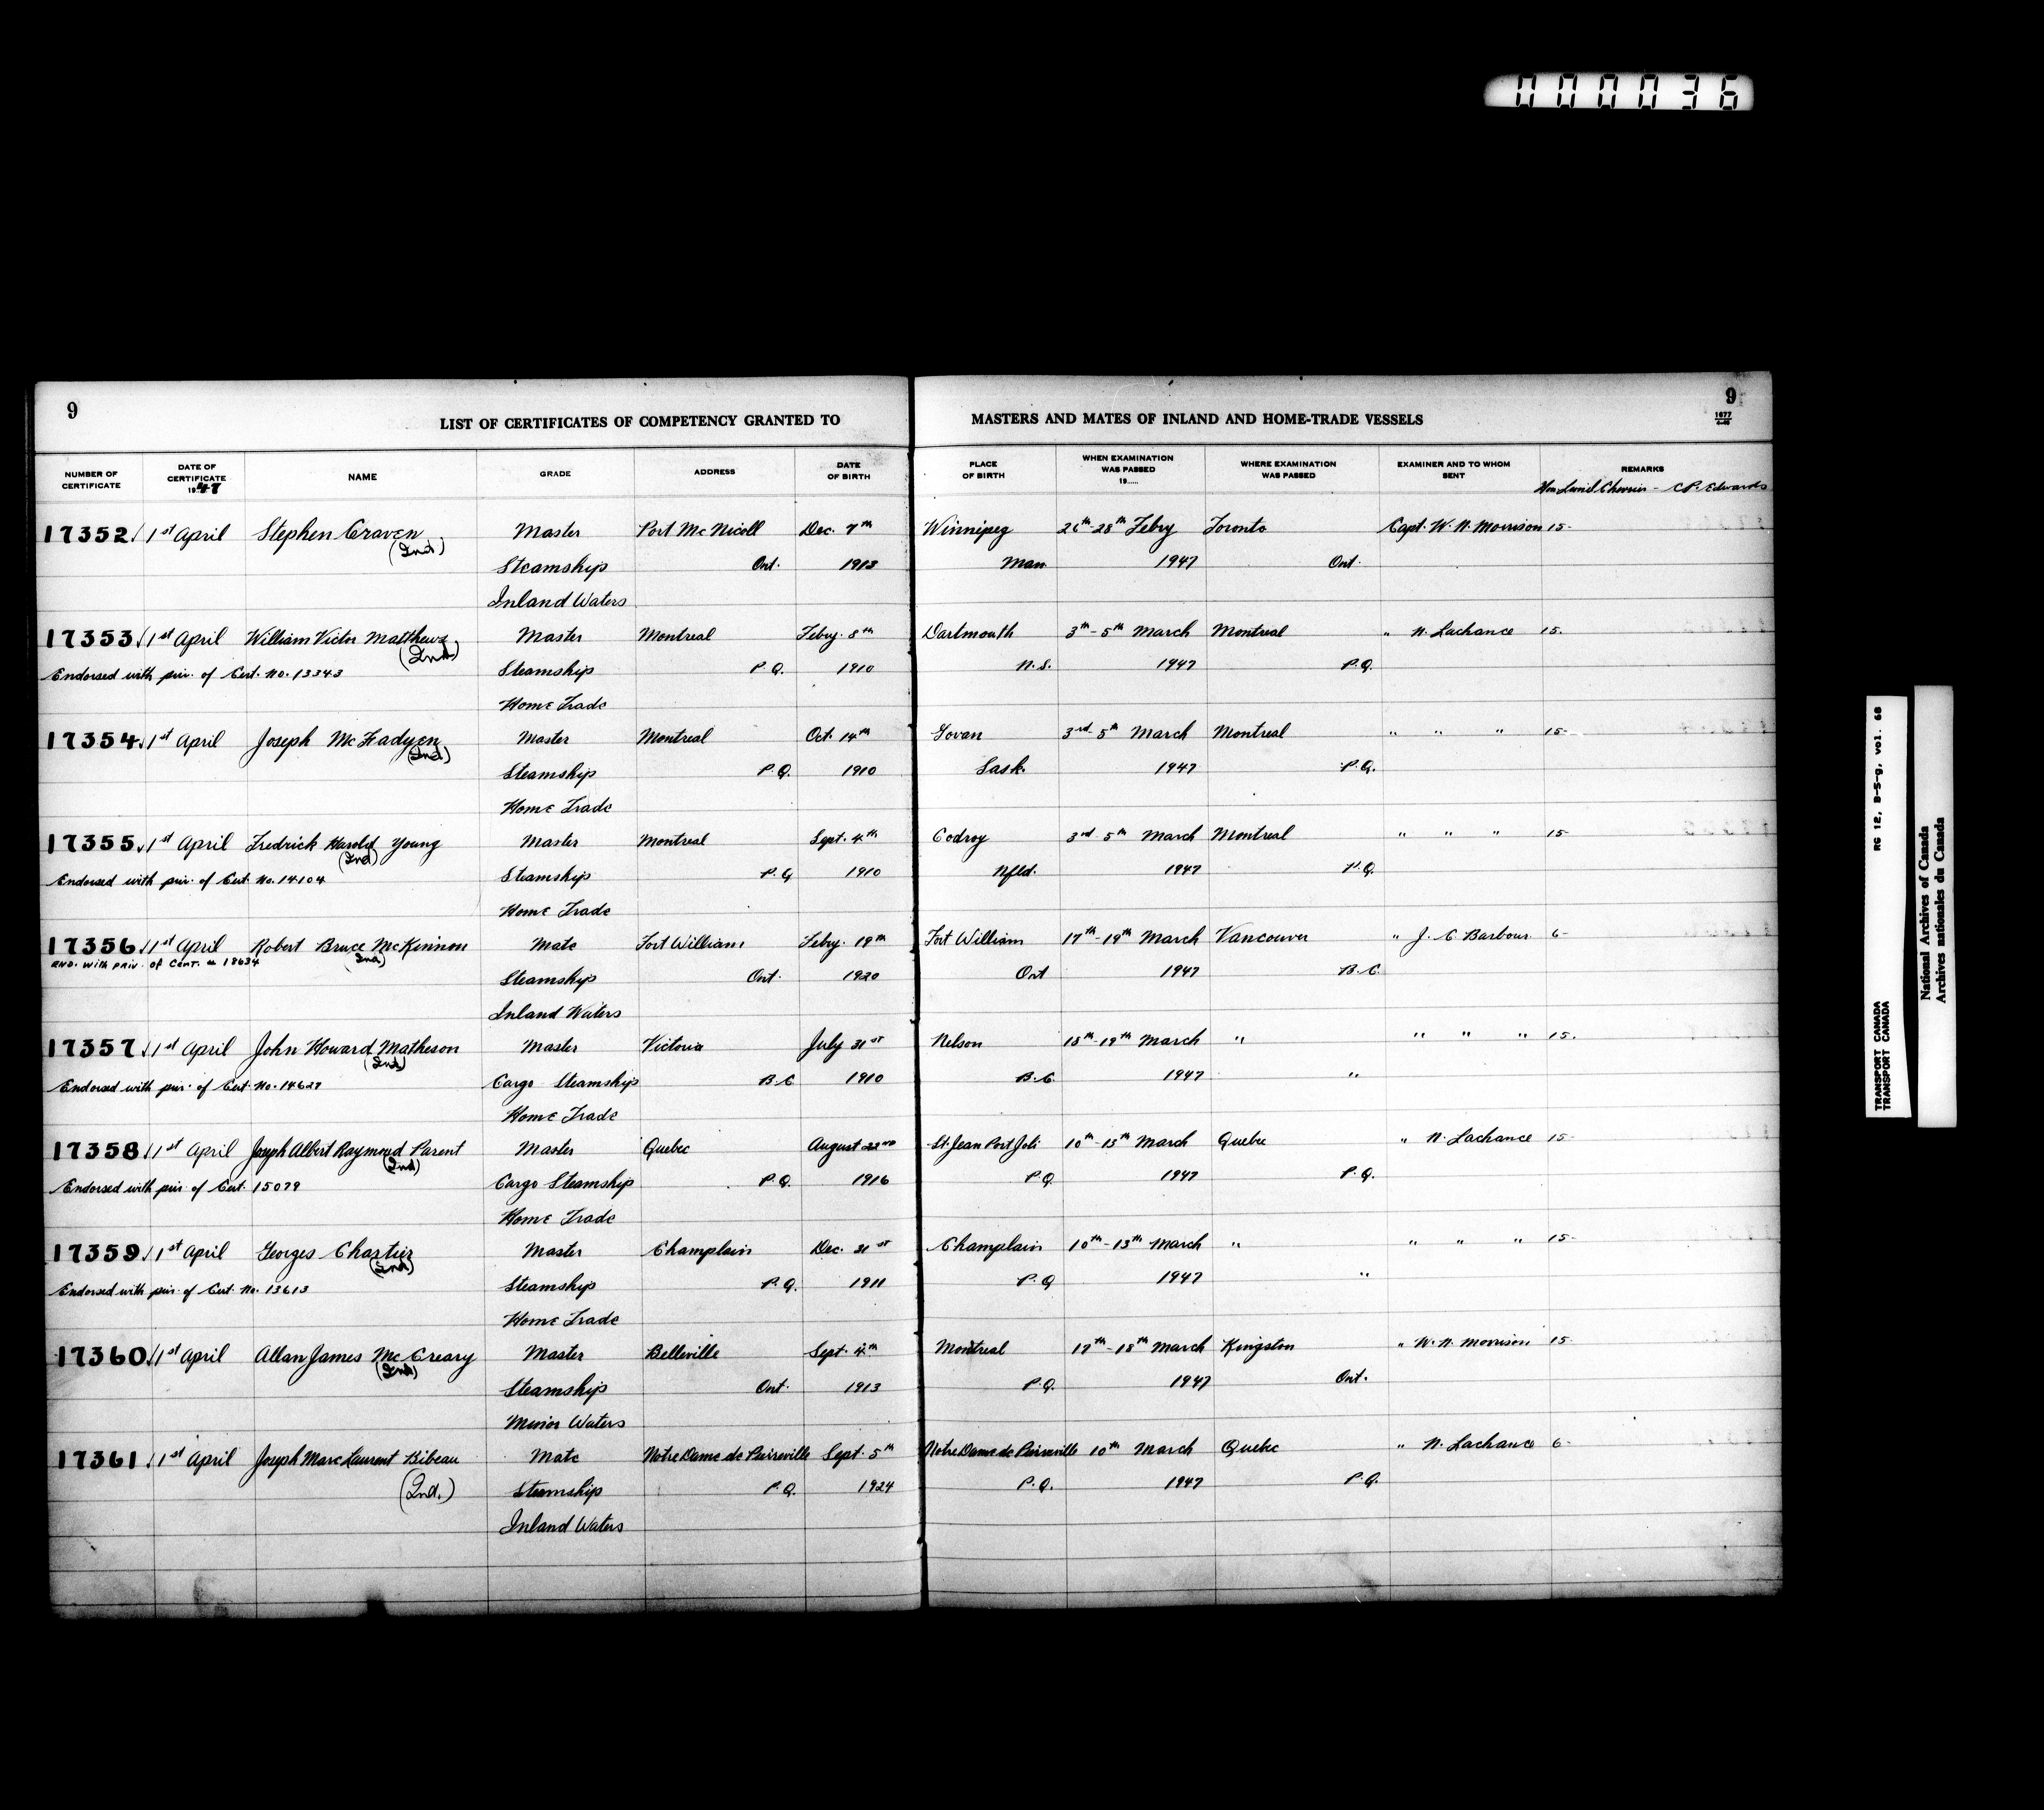 000036
9
LIST OF CERTIFICATES OF COMPETENCY GRANTED TO MASTERS AND MATES OF INLAND AND HOME-TRADE VESSELS
9
1677
NUMBER OF CERTIFICATE DATE OF CERTIFICATE 1947 NAME GRADE ADDRESS DATE OF BIRTH PLACE OF BIRTH WHEN EXAMINATION WAS PASSED 19..... WHERE EXAMINATION WAS PASSED EXAMINER AND TO WHOM SENT REMARKS
Hon Lionel Chevrier - C.P. Edwards
17352 1st April Stephen Craven Master Port McNicoll Dec. 7th Winnipeg 26th-28th Febry Toronto Capt. W. N. Morrison 15-
(Ind.)
Steamship Ont. 1913 Man. 1947 Ont.
Inland Waters
17353 1st April William Victor Matthews Master Montreal Febry. 8th Dartmouth 3th-5th March Montreal " N. Lachance 15.
(Ind)
Endorsed with priv. of Cert. No. 13343 Steamship P.Q. 1910 N.S. 1947 P.Q.
Home Trade
17354 1st April Joseph McFadyen Master Montreal Oct. 14th Govan 3rd-5th March Montreal " " " 15-
(Ind)
Steamship P.Q. 1910 Sask. 1947 P.Q.
Home Trade
17355 1st April Fredrick Harold Young Master Montreal Sept. 4th Codroy 3rd 5th March Montreal " " " 15-
(Ind)
Endorsed with priv. of Cert. No. 14104 Steamship P.Q 1910 Nfld. 1947 P.Q.
Home Trade
17356 1st April Robert Bruce McKinnon Mate Fort William Febry. 19th Fort William 17th-19th March Vancouver " J. C. Barbour 6-
(Ind)
END. WITH PRIV. OF CERT. # 18634
Steamship Ont. 1920 Ont 1947 B.C.
Inland Waters
17357 1st April John Howard Matheson Master Victoria July 31st Nelson 18th-19th March " " " " 15.
(Ind)
Endorsed with priv. of Cert. No. 14627 Cargo Steamship B.C. 1910 B.C. 1947 "
Home Trade
17358 1st April Joseph Albert Raymond Parent Master Quebec August 22nd St. Jean Port Joli 10th-13th March Quebec " N. Lachance 15-
(Ind)
Endorsed with priv. of Cert. 15079 Cargo Steamship P.Q. 1916 P.Q. 1947 P.Q.
Home Trade
17359 1st April Georges Chartier Master Champlain Dec. 31st Champlain 10th-13th March " " " " 15-
(Ind)
Endorsed with priv. of Cert. No. 13613 Steamship P.Q. 1911 P.Q 1947 "
Home Trade
17360 1st April Allan James McCreary Master Belleville Sept. 4th Montreal 17th-18th March Kingston " W. N. Morrison 15
(Ind)
Steamship Ont. 1913 P.Q. 1947 Ont.
Minor Waters
17361 1st April Joseph Marc Laurent Bibeau Mate Notre Dame de Pierreville Sept. 5th Notre Dame de Pierreville 10th March Quebec " N. Lachance 6-
(Ind.)
Steamship P.Q. 1924 P.Q. 1947 P.Q.
Inland Waters
RG 12, B-5-g, vol. 68
TRANSPORT CANADA
TRANSPORT CANADA
National Archives of Canada
Archives nationales du Canada